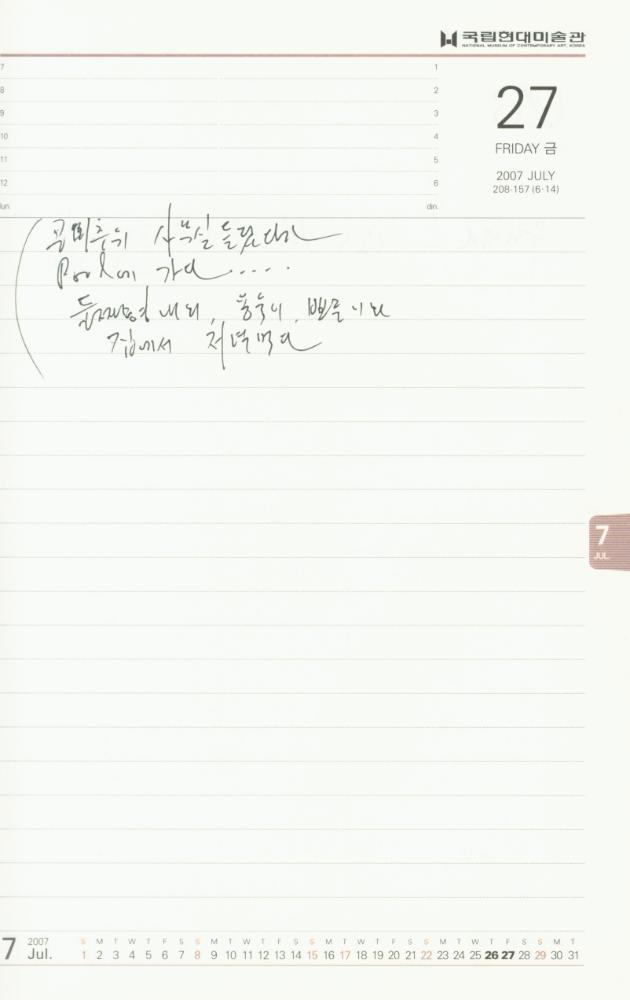 국립현대미술관
NATIONAL MUSEUM OF CONTEMPORARY ART, KOREA
7 1
8 2
9 3
10 4
11 5
12 6
lun. din.
27
FRIDAY 금
2007 JULY
208-157 (6·14)
사무실 들렀다가
Pool에 가다.....
둘째형 내외,
집에서 저녁먹다
7
JUL.
7 2007 Jul.
S M T W T F S S M T W T F S S M T W T F S S M T W T F S S M T
1 2 3 4 5 6 7 8 9 10 11 12 13 14 15 16 17 18 19 20 21 22 23 24 25 26 27 28 29 30 31